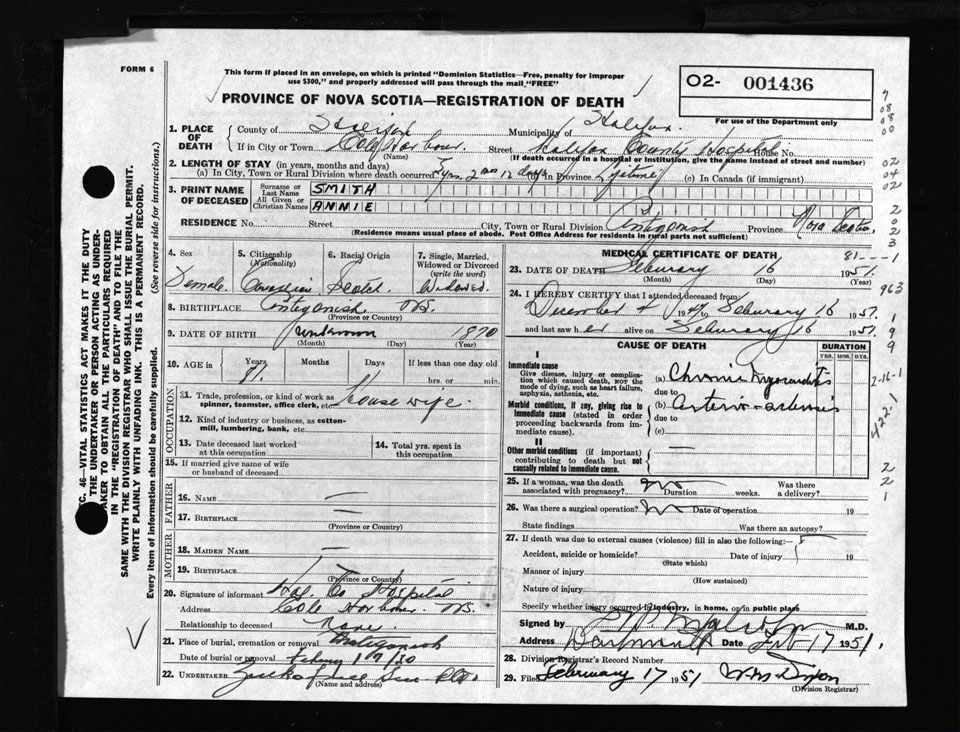 FORM 6
This form if placed in an envelope, on which is printed "Dominion Statistics—Free, penalty for improper
use $300," and properly addressed will pass through the mail "FREE"
O2- 001436
For use of the Department only
PROVINCE OF NOVA SCOTIA—REGISTRATION OF DEATH
1. PLACE OF DEATH
County of Halifax Municipality of Halifax.
If in City or Town Cole Harbour. Street Halifax County Hospital House No.
(Name) (If death occurred in a hospital or institution, give the name instead of street and number)
2. LENGTH OF STAY (in years, months and days)
(a) In City, Town or Rural Division where death occurred 3 yrs. 2 mos 12 days (b) In Province Lifetime (c) In Canada (if immigrant)
3. PRINT NAME OF DECEASED
Surname or Last Name SMITH
All Given or Christian Names ANNIE
RESIDENCE No. Street City, Town or Rural Division Antigonish Province Nova Scotia.
(Residence means usual place of abode. Post Office Address for residents in rural parts not sufficient)
4. Sex Female.
5. Citizenship (Nationality) Canadian
6. Racial Origin Scotch
7. Single, Married, Widowed or Divorced (write the word) Widowed.
8. BIRTHPLACE Antigonish NS.
(Province or Country)
9. DATE OF BIRTH Unknown 1870
(Month) (Day) (Year)
10. AGE in Years Months Days If less than one day old
81. hrs. or min.
OCCUPATION
11. Trade, profession, or kind of work as spinner, teamster, office clerk, etc. Housewife.
12. Kind of industry or business, as cotton-mill, lumbering, bank, etc.
13. Date deceased last worked at this occupation
14. Total yrs. spent in this occupation
15. If married give name of wife or husband of deceased
FATHER
16. NAME —
17. BIRTHPLACE —
(Province or Country)
MOTHER
18. MAIDEN NAME —
19. BIRTHPLACE
(Province or Country)
20. Signature of informant Hal. Co Hospital
Address Cole Harbour. NS.
Relationship to deceased None.
21. Place of burial, cremation or removal Antigonish
Date of burial or removal
22. UNDERTAKER
(Name and address)
MEDICAL CERTIFICATE OF DEATH
81---1
23. DATE OF DEATH February 16 1951.
(Month) (Day) (Year)
24. I HEREBY CERTIFY that I attended deceased from:
December 4 1947 February 16 1951.
and last saw her alive on February 16 1951.
CAUSE OF DEATH
DURATION
YRS. MOS. DYS.
I
Immediate cause
Give disease, injury or complication which caused death, not the mode of dying, such as heart failure, asphyxia, asthenia, etc.
(a) Chronic Myocarditis
due to
Morbid conditions, if any, giving rise to immediate cause (stated in order proceeding backwards from immediate cause).
(b)
due to
(c)
II
Other morbid conditions (if important) contributing to death but not causally related to immediate cause.
—
25. If a woman, was the death associated with pregnancy? no Duration weeks. Was there a delivery?
26. Was there a surgical operation? no Date of operation 19
State findings Was there an autopsy?
27. If death was due to external causes (violence) fill in also the following:—
Accident, suicide or homicide? Date of injury 19
(State which)
Manner of injury
(How sustained)
Nature of injury
Specify whether injury occurred in industry, in home, or in public place
Signed by M.D.
Address Dartmouth Date Feb 17 1951.
28. Division Registrar's Record Number
29. Filed February 17 1951
(Division Registrar)
THE UNDERTAKER OR PERSON ACTING AS UNDER-
IN THE "REGISTRATION OF DEATH" AND TO FILE THE
SAME WITH THE DIVISION REGISTRAR WHO SHALL ISSUE THE BURIAL PERMIT.
WRITE PLAINLY WITH UNFADING INK. THIS IS A PERMANENT RECORD.
Every item of information should be carefully supplied. (See reverse side for instructions.)